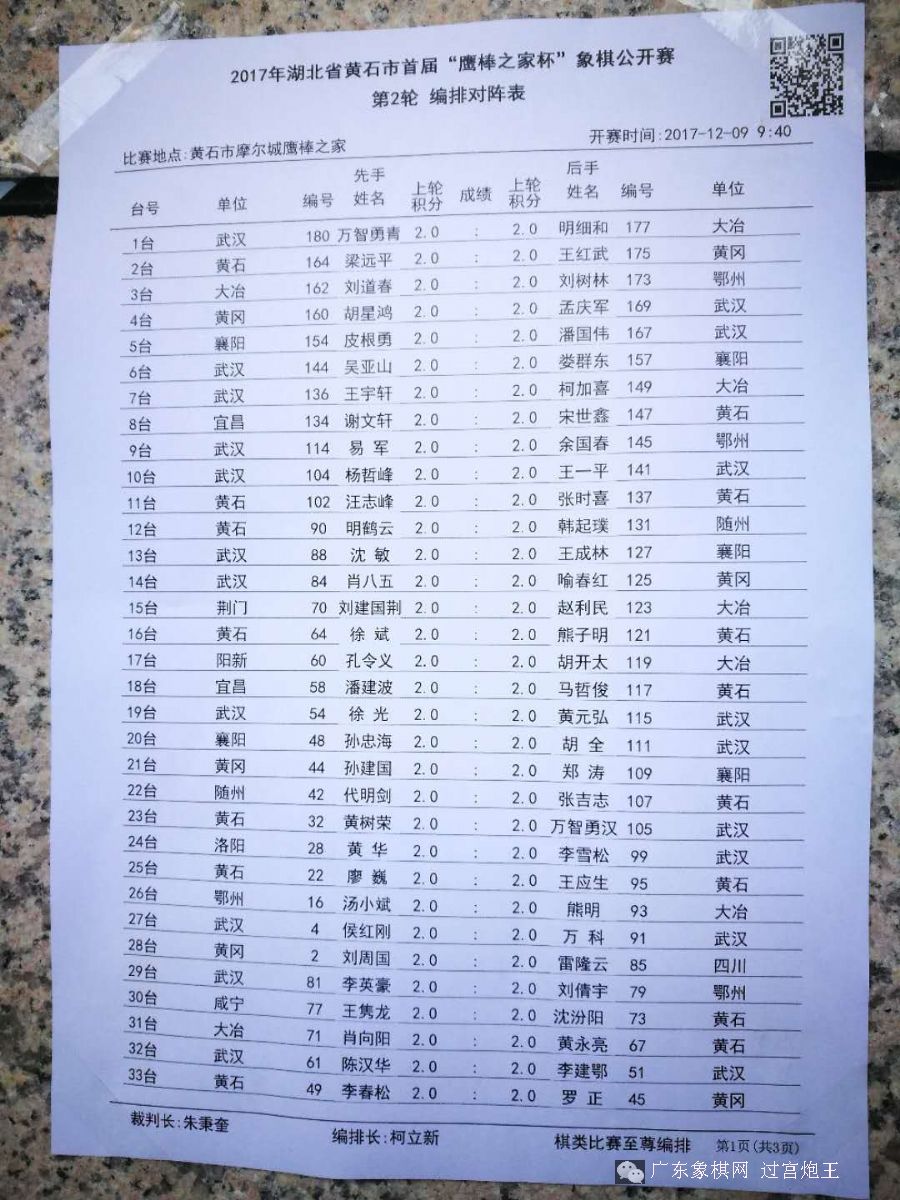 2017年湖北省黄石市首届“鹰棒之家杯”象棋公开赛
第2轮 编排对阵表
比赛地点:黄石市摩尔城鹰棒之家 开赛时间:2017-12-09 9:40
台号 单位 编号 先手姓名 上轮积分 成绩 上轮积分 后手姓名 编号 单位
1台 武汉 180 万智勇青 2.0 : 2.0 明细和 177 大冶
2台 黄石 164 梁远平 2.0 : 2.0 王红武 175 黄冈
3台 大冶 162 刘道春 2.0 : 2.0 刘树林 173 鄂州
4台 黄冈 160 胡星鸿 2.0 : 2.0 孟庆军 169 武汉
5台 襄阳 154 皮根勇 2.0 : 2.0 潘国伟 167 武汉
6台 武汉 144 吴亚山 2.0 : 2.0 娄群东 157 襄阳
7台 武汉 136 王宇轩 2.0 : 2.0 柯加喜 149 大冶
8台 宜昌 134 谢文轩 2.0 : 2.0 宋世鑫 147 黄石
9台 武汉 114 易 军 2.0 : 2.0 余国春 145 鄂州
10台 武汉 104 杨哲峰 2.0 : 2.0 王一平 141 武汉
11台 黄石 102 汪志峰 2.0 : 2.0 张时喜 137 黄石
12台 黄石 90 明鹤云 2.0 : 2.0 韩起璞 131 随州
13台 武汉 88 沈 敏 2.0 : 2.0 王成林 127 襄阳
14台 武汉 84 肖八五 2.0 : 2.0 喻春红 125 黄冈
15台 荆门 70 刘建国荆 2.0 : 2.0 赵利民 123 大冶
16台 黄石 64 徐 斌 2.0 : 2.0 熊子明 121 黄石
17台 阳新 60 孔令义 2.0 : 2.0 胡开太 119 大冶
18台 宜昌 58 潘建波 2.0 : 2.0 马哲俊 117 黄石
19台 武汉 54 徐 光 2.0 : 2.0 黄元弘 115 武汉
20台 襄阳 48 孙忠海 2.0 : 2.0 胡 全 111 武汉
21台 黄冈 44 孙建国 2.0 : 2.0 郑 涛 109 襄阳
22台 随州 42 代明剑 2.0 : 2.0 张吉志 107 黄石
23台 黄石 32 黄树荣 2.0 : 2.0 万智勇汉 105 武汉
24台 洛阳 28 黄 华 2.0 : 2.0 李雪松 99 武汉
25台 黄石 22 廖 巍 2.0 : 2.0 王应生 95 黄石
26台 鄂州 16 汤小斌 2.0 : 2.0 熊明 93 大冶
27台 武汉 4 侯红刚 2.0 : 2.0 万 科 91 武汉
28台 黄冈 2 刘周国 2.0 : 2.0 雷隆云 85 四川
29台 武汉 81 李英豪 2.0 : 2.0 刘倩宇 79 鄂州
30台 咸宁 77 王隽龙 2.0 : 2.0 沈汾阳 73 黄石
31台 大冶 71 肖向阳 2.0 : 2.0 黄永亮 67 黄石
32台 武汉 61 陈汉华 2.0 : 2.0 李建鄂 51 武汉
33台 黄石 49 李春松 2.0 : 2.0 罗 正 45 黄冈
裁判长:朱秉奎 编排长:柯立新 棋类比赛至尊编排 第1页(共3页)
广东象棋网 过宫炮王